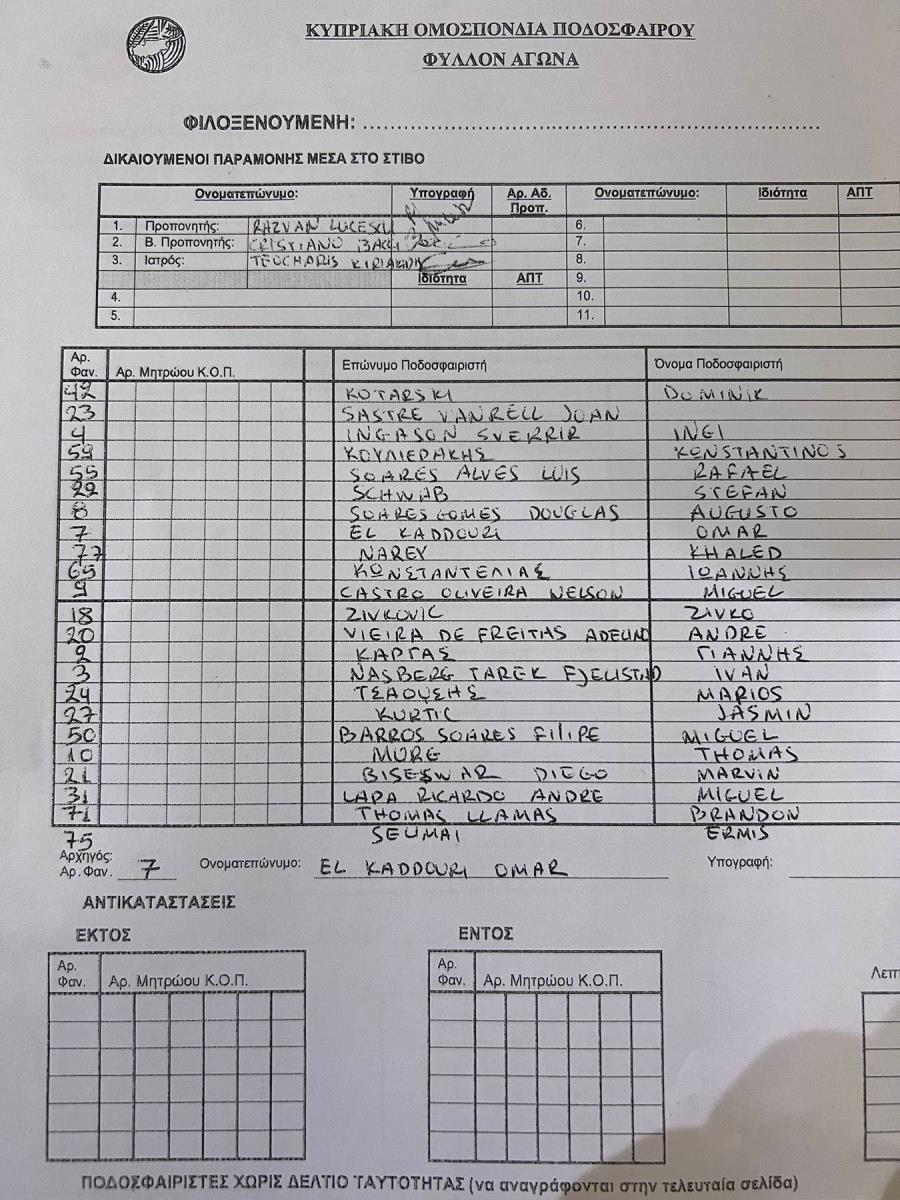 ΚΥΠΡΙΑΚΗ ΟΜΟΣΠΟΝΔΙΑ ΠΟΔΟΣΦΑΙΡΟΥ
ΦΥΛΛΟΝ ΑΓΩΝΑ
ΦΙΛΟΞΕΝΟΥΜΕΝΗ: ........................................................
ΔΙΚΑΙΟΥΜΕΝΟΙ ΠΑΡΑΜΟΝΗΣ ΜΕΣΑ ΣΤΟ ΣΤΙΒΟ
Ονοματεπώνυμο: Υπογραφή Αρ. Αδ. Προπ. Ονοματεπώνυμο: Ιδιότητα ΑΠΤ
1. Προπονητής: RAZVAN LUCESCU 6.
2. Β. Προπονητής: CRISTIANO BACCI 7.
3. Ιατρός: TEOCHARIS KIRIAKIDIS 8.
Ιδιότητα ΑΠΤ 9.
4. 10.
5. 11.
Αρ. Φαν. Αρ. Μητρώου Κ.Ο.Π. Επώνυμο Ποδοσφαιριστή Όνομα Ποδοσφαιριστή
42 KOTARSKI DOMINIK
23 SASTRE VANRELL JOAN
4 INGASON SVERRIR INGI
59 ΚΟΥΛΙΕΡΑΚΗΣ KΩNSTANTINOS
55 SOARES ALVES LUIS RAFAEL
22 SCHWAB STEFAN
8 SOARES GOMES DOUGLAS AUGUSTO
7 EL KADDOURI OMAR
77 NAREY KHALED
65 ΚΩΝΣΤΑΝΤΕΛΙΑΣ ΙΩΑΝΝΗΣ
9 CASTRO OLIVEIRA NELSON MIGUEL
18 ZIVKOVIC ZIVKO
20 VIEIRA DE FREITAS ADELINO ANDRE
2 ΚΑΡΓΑΣ ΓΙΑΝΝΗΣ
3 NASBERG TAREK FJELISTAD IVAN
24 ΤΣΑΟΥΣΗΣ MARIOS
27 KURTIC JASMIN
50 BARROS SOARES FILIPE MIGUEL
10 MURG THOMAS
21 BISESWAR DIEGO MARVIN
31 LAPA RICARDO ANDRE MIGUEL
71 THOMAS LLAMAS BRANDON
75 SEUMAI ERMIS
Αρχηγός: Αρ. Φαν. 7 Ονοματεπώνυμο: EL KADDOURI OMAR Υπογραφή:
ΑΝΤΙΚΑΤΑΣΤΑΣΕΙΣ
ΕΚΤΟΣ ΕΝΤΟΣ
Αρ. Φαν. Αρ. Μητρώου Κ.Ο.Π. Αρ. Φαν. Αρ. Μητρώου Κ.Ο.Π. Λεπτ
ΠΟΔΟΣΦΑΙΡΙΣΤΕΣ ΧΩΡΙΣ ΔΕΛΤΙΟ ΤΑΥΤΟΤΗΤΑΣ (να αναγράφονται στην τελευταία σελίδα)